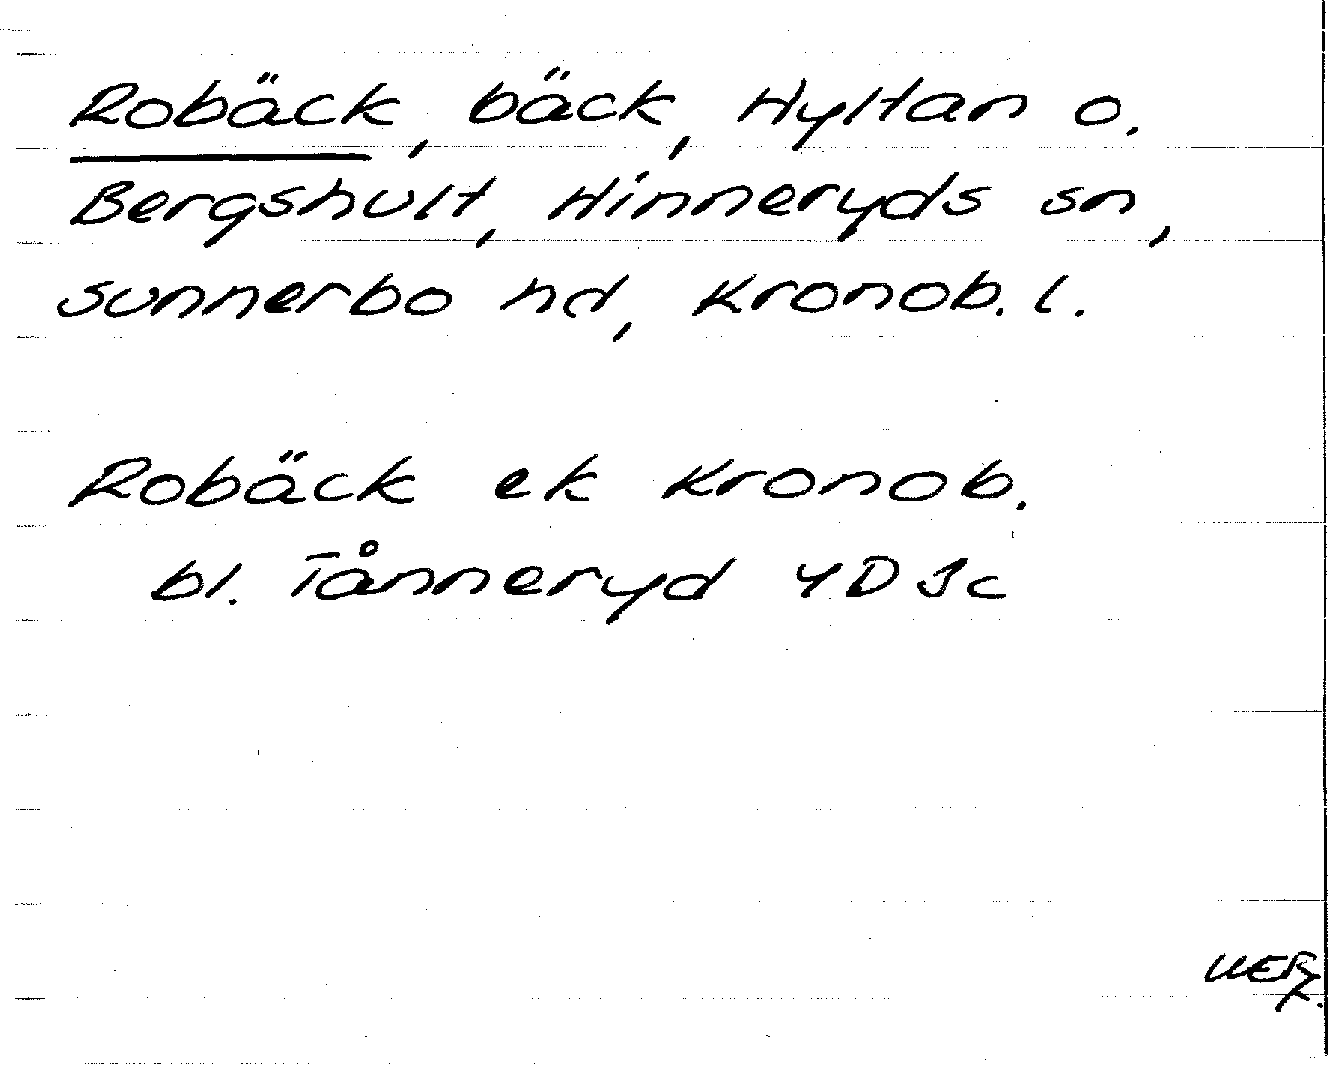 Robäck, bäck, Hyltan o.
Bergshult, Hinneryds sn,
Sunnerbo hd, Kronob. l.
Robäck ek Kronob.
bl. Tånneryd 4D Sc